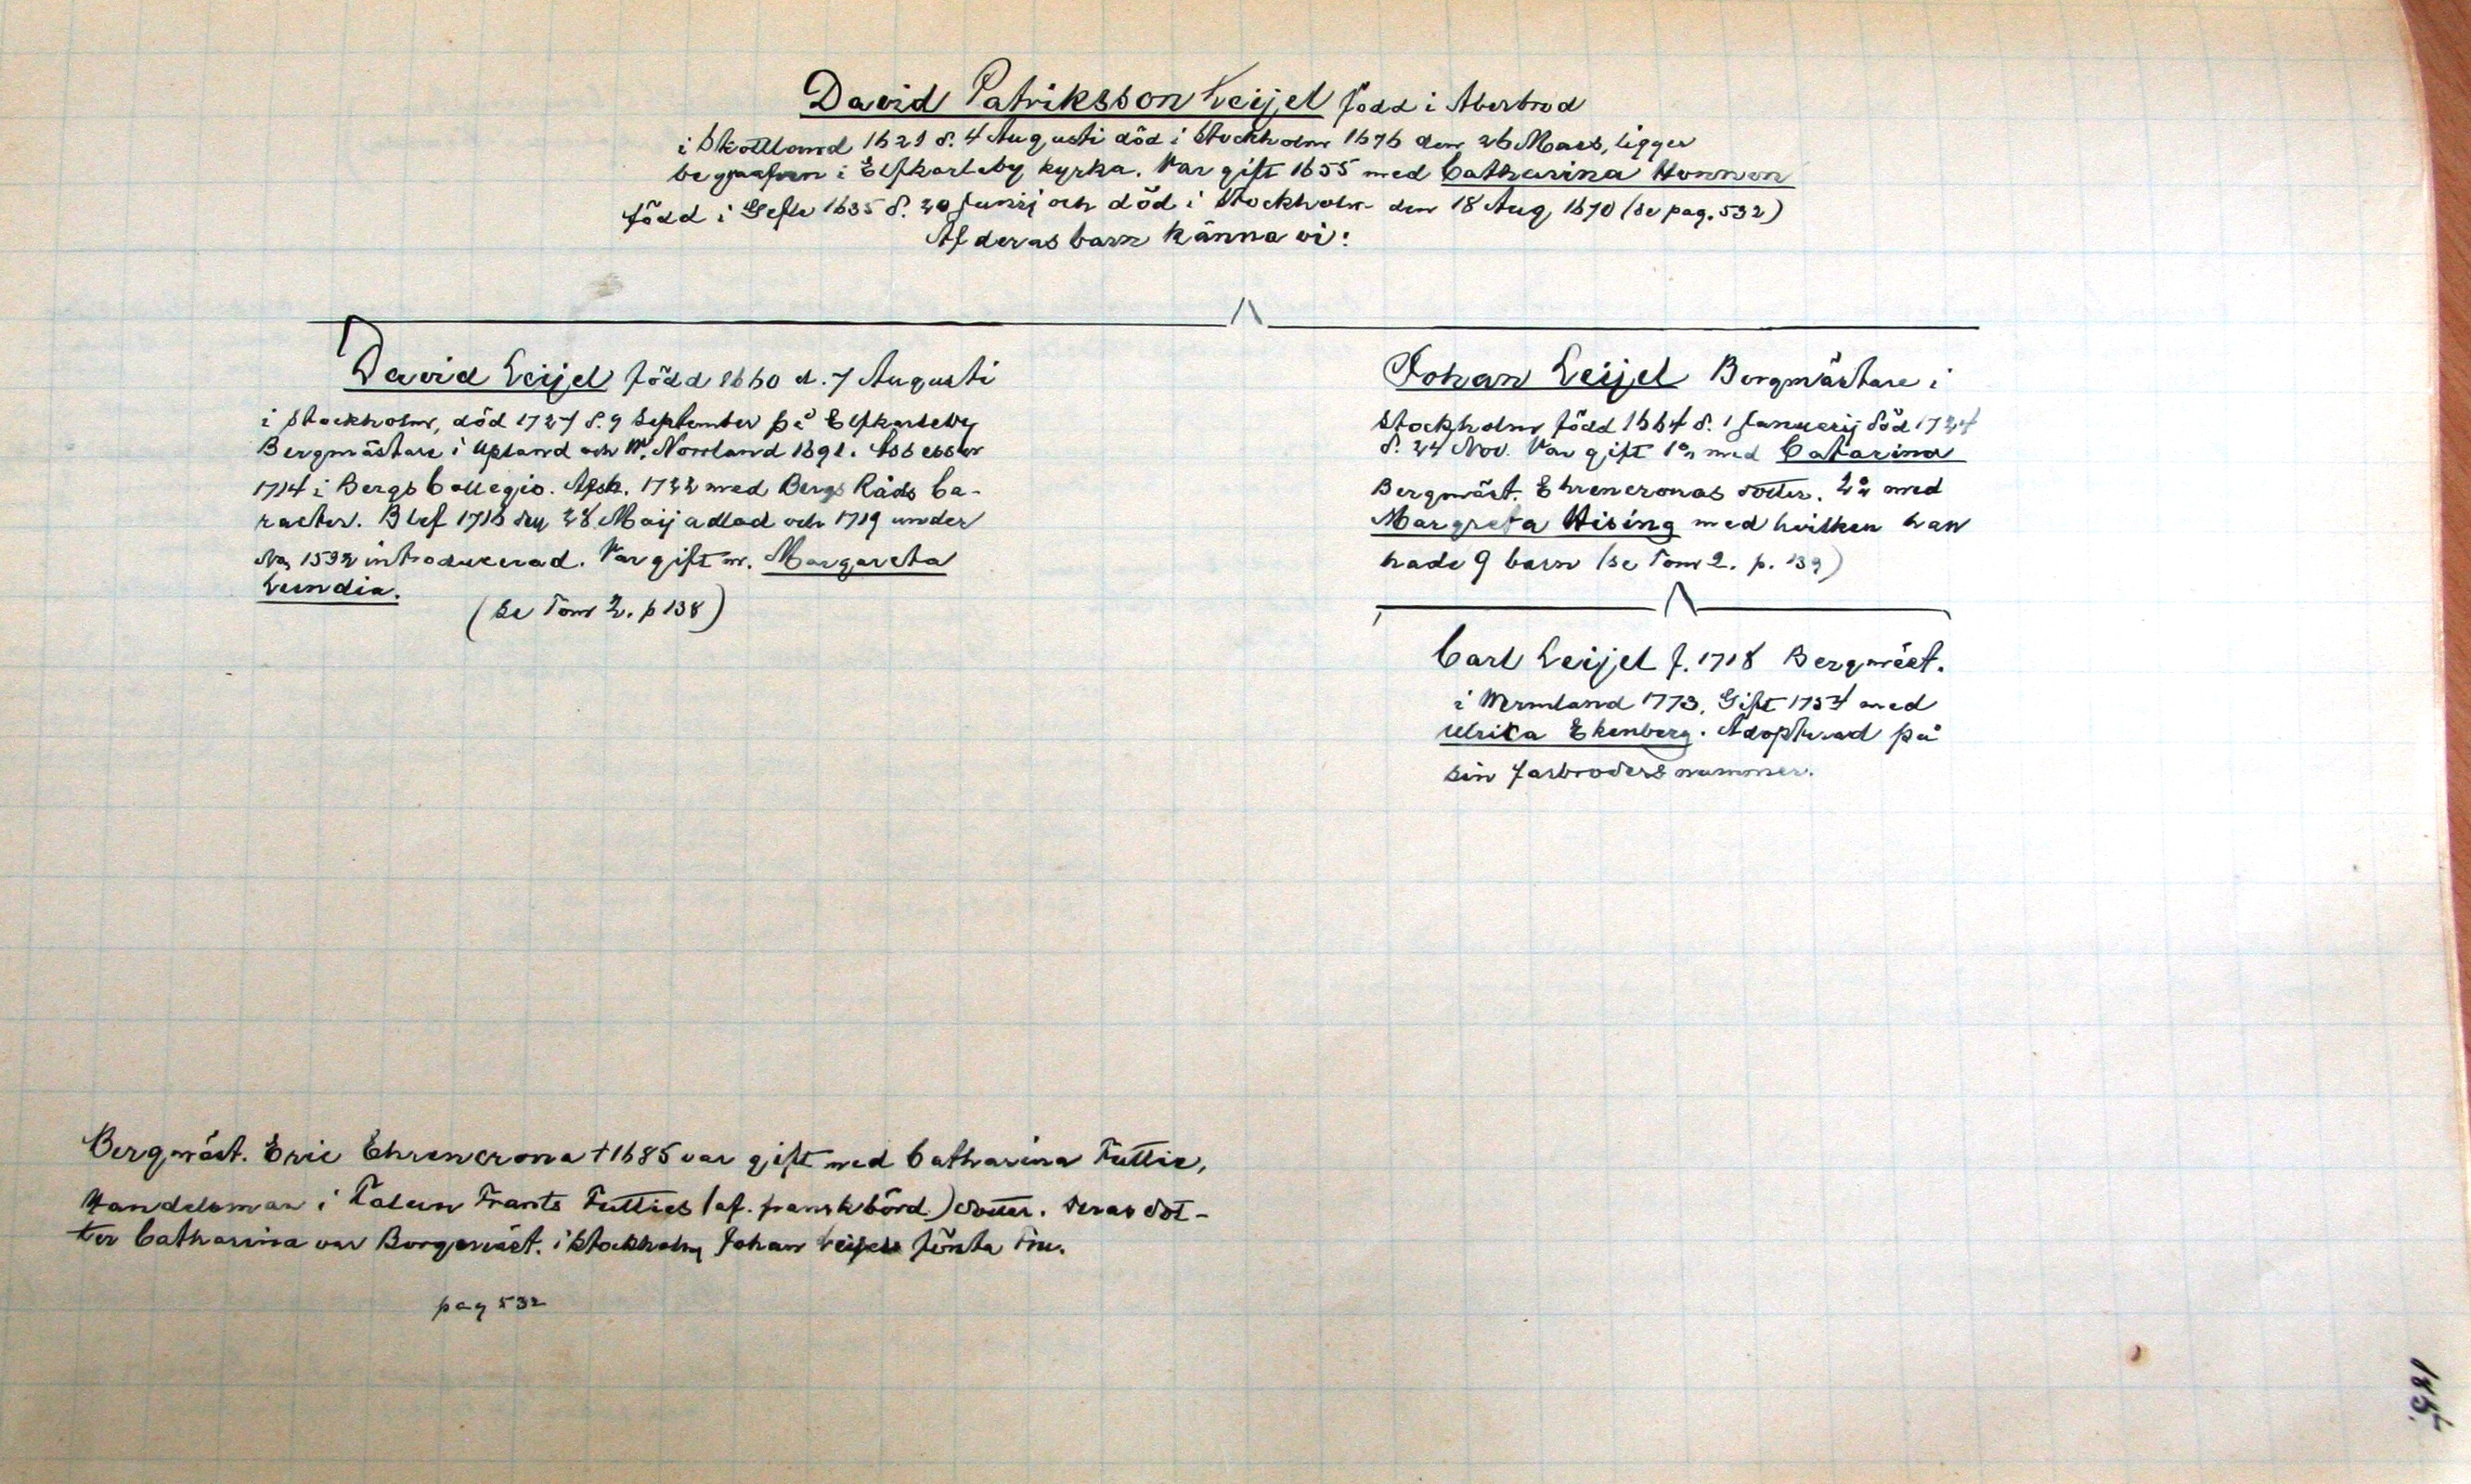 David Patriksson Leijel född i Aberbrod
i Skottland 1629 d. 4 Augusti död i Stockholm 1676 den 26 Mars, ligger
begrafven i Elfkarleby kyrka. Var gift 1655 med Catharina Honnon
född i Gefle 1635 d. 20 Junij och död i Stockholm den 18 Aug, 1670 (se pag. 532)
Af deras barn känna vi:
David Leijel född 1660 d. 7 Augusti
i Stockholm, död 1727 d. 9 September på Elfkarleby
Bergmästare i Upland och W. Norrland 1691. Assessor
1714 i Bergs Collegio. Afsk. 1722 med Bergs Råds Ca-
racter. Blef 1716 den 28 Maij adlad och 1719 under
No, 1592 introducerad. Var gift m. Margareta
Lundia.
(se Tom 2. p 138)
Johan Leijel Bergmästare i
Stockholm född 1664 d. 1 Januarij död 1724
d. 24 Nov. Var gift 1o, med Catarina
Bergmäst. Ehrencronas dotter. 2o med
Margreta Hising med hvilken han
hade 9 barn (se Tom 2. p. 139)
Carl Leijel f. 1718 Bergmäst.
i Wermland 1773. Gift 1754 med
Ulrica Ekenberg. Adopterad på
sin farbroders nummer.
Bergmäst. Eric Ehrencrona †1685 var gift med Catharina Futtie,
Handelsman i Falun Frants Futties (af. fransk börd.) dotter. Deras dot-
ter Catharina var Bergmäst. i Stockholm Johan Leijels första Fru.
pag 532
185.